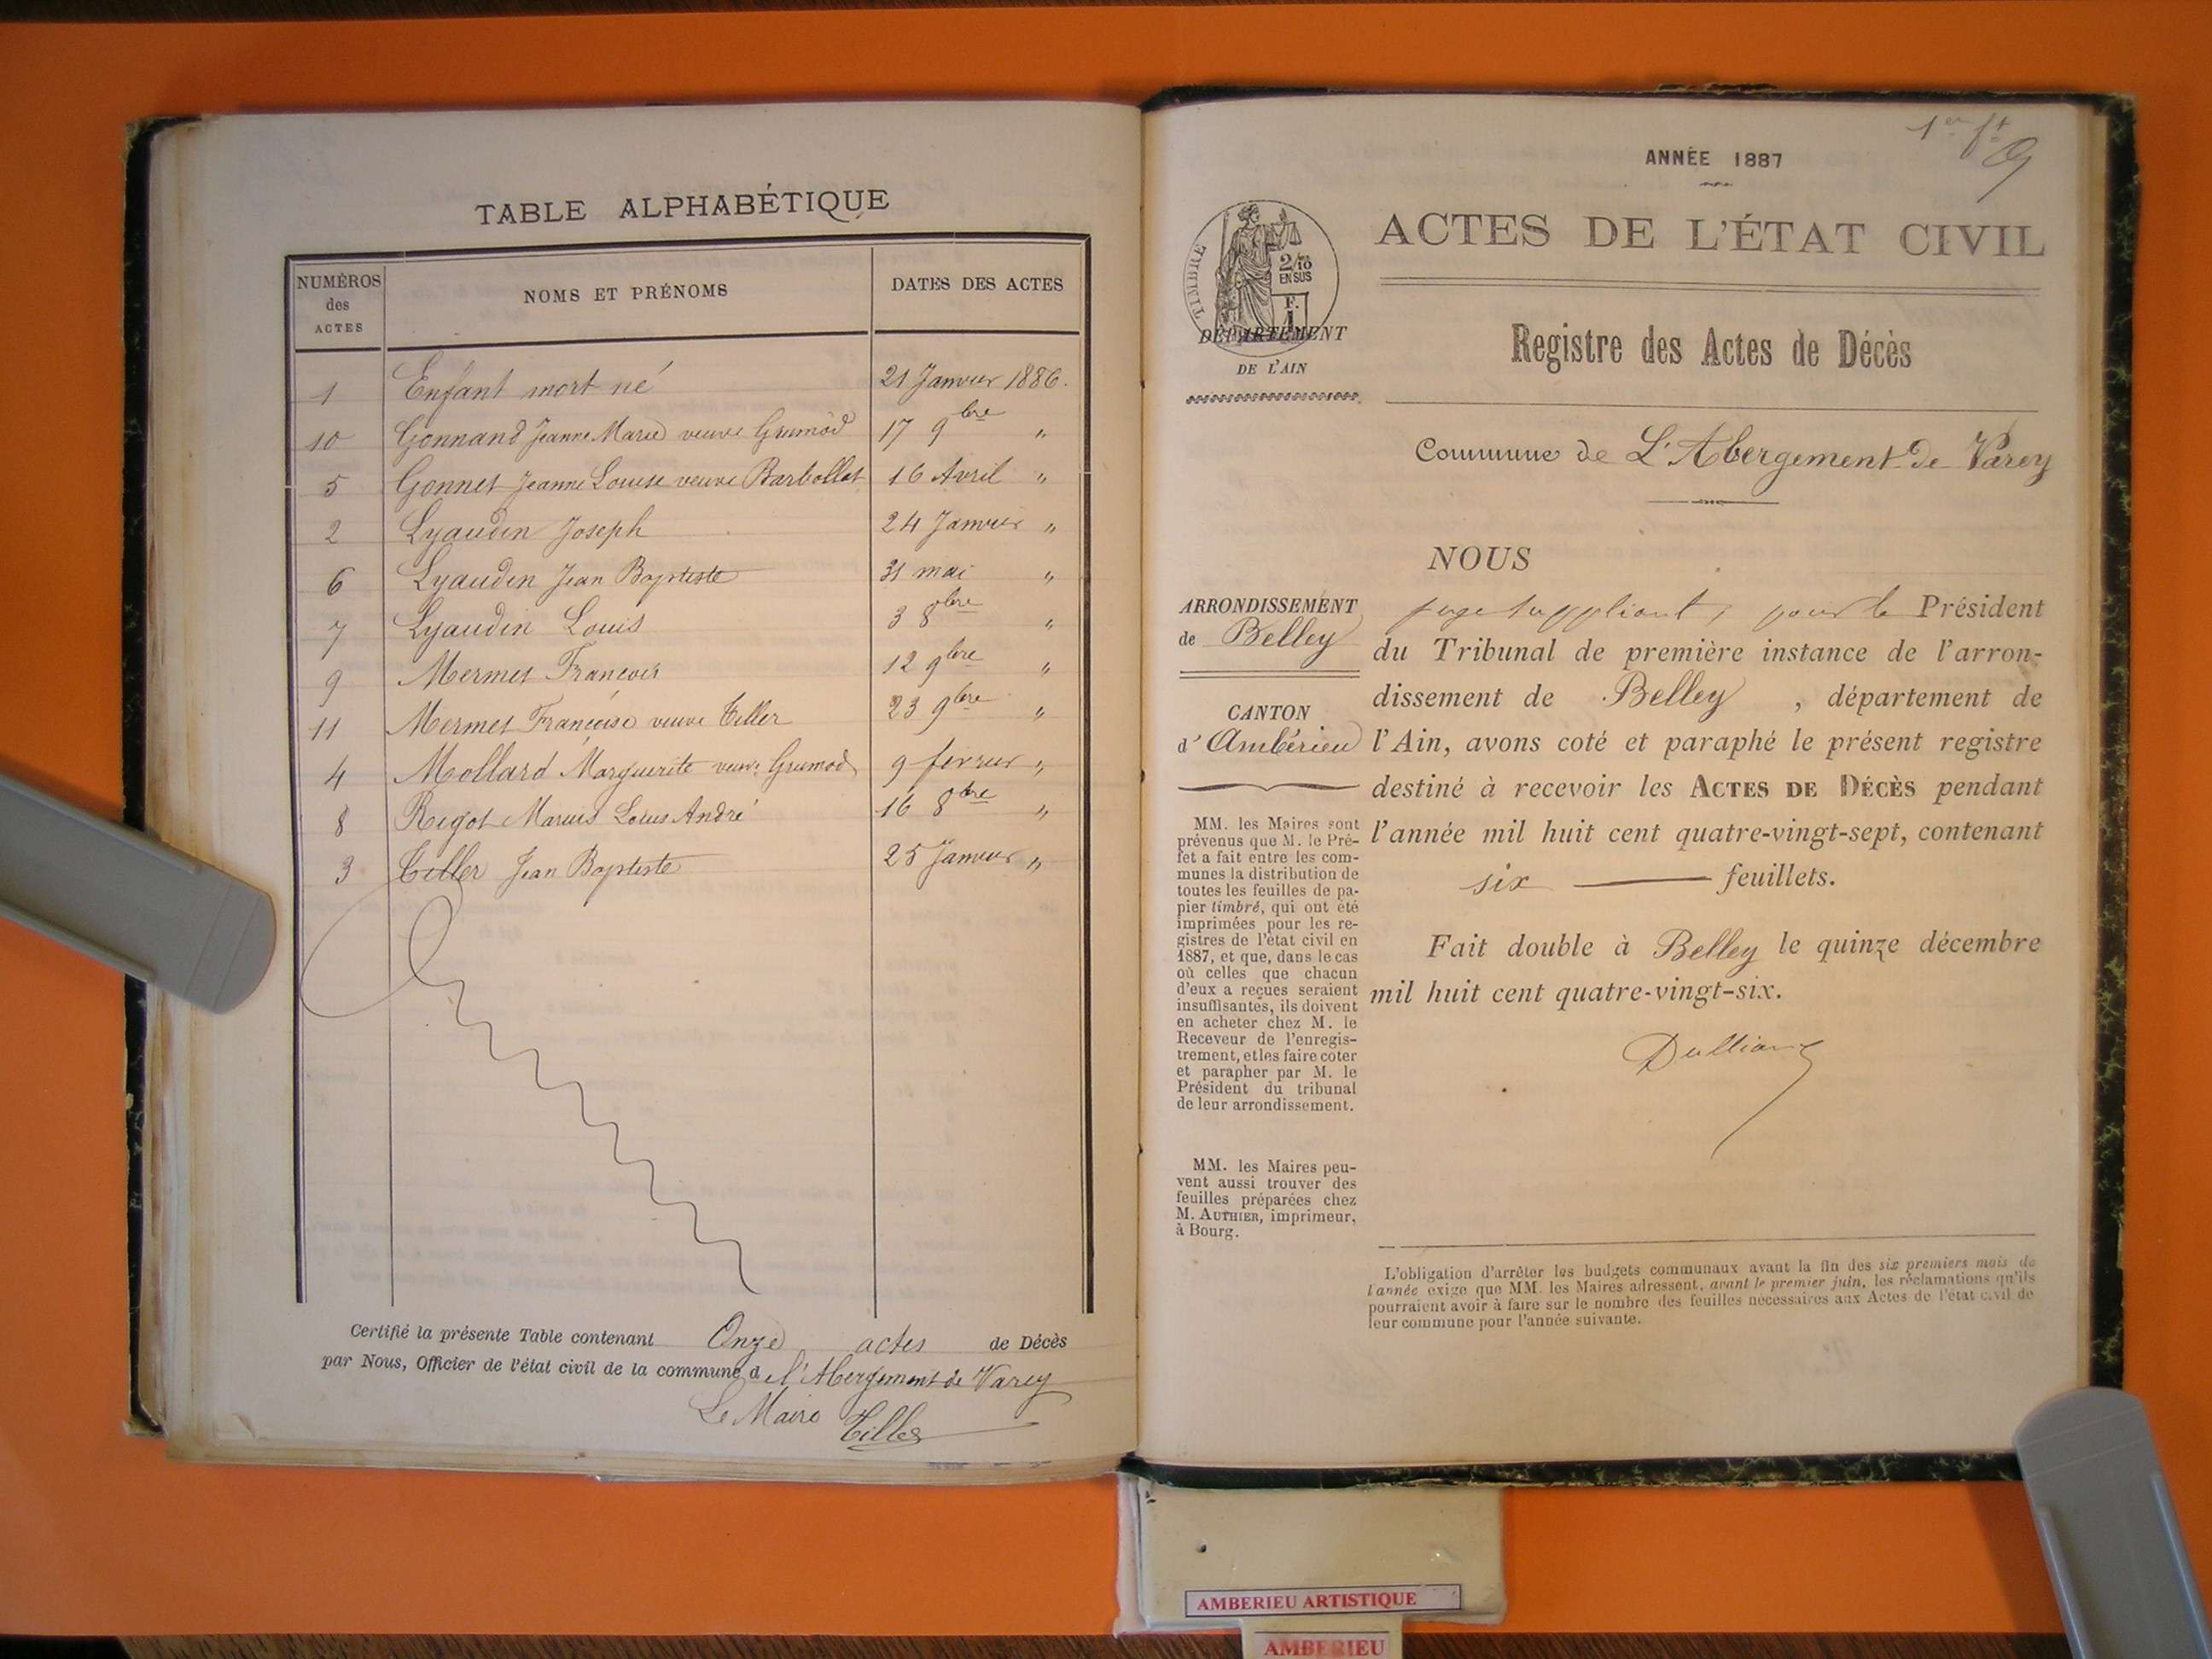 TABLE ALPHABÉTIQUE
NUMÉROS des ACTES NOMS ET PRÉNOMS DATES DES ACTES
1 Enfant mort né 21 Janvier 1886.
10 Gonnand Jeanne Marie veuve Grumod 17 9bre "
5 Gonnet Jeanne Louise veuve Barbollat 16 Avril "
2 Lyaudin Joseph 24 Janvier "
6 Lyaudin Jean Baptiste 31 mai "
7 Lyaudin Louis 3 8bre "
9 Mermet François 12 9bre "
11 Mermet Françoise veuve Tiller 23 9bre "
4 Mollard Marguerite veuve Grumod 9 fevrier "
8 Rigot Marius Louis André 16 8bre "
3 Tiller Jean Baptiste 25 Janvier "
Certifié la présente Table contenant Onze actes de Décès
par Nous, Officier de l'état civil de la commune d e l'Abergement de Varey
Le Maire Tiller
1er ft
ANNÉE 1887
TIMBRE
2/10
EN SUS
F.
1
DÉPARTEMENT
DE L'AIN
ACTES DE L'ÉTAT CIVIL
Registre des Actes de Décès
Commune de L'Abergement de Varey
ARRONDISSEMENT
de Belley
CANTON
d' Ambérieu
MM. les Maires sont
prévenus que M. le Pré-
fet a fait entre les com-
munes la distribution de
toutes les feuilles de pa-
pier timbré, qui ont été
imprimées pour les re-
gistres de l'état civil en
1887, et que, dans le cas
où celles que chacun
d'eux a reçues seraient
insuffisantes, ils doivent
en acheter chez M. le
Receveur de l'enregis-
trement, et les faire coter
et parapher par M. le
Président du tribunal
de leur arrondissement.
MM. les Maires peu-
vent aussi trouver des
feuilles préparées chez
M. AUTHIER, imprimeur,
à Bourg.
NOUS
juge suppléant, pour le Président
du Tribunal de première instance de l'arron-
dissement de Belley , département de
l'Ain, avons coté et paraphé le présent registre
destiné à recevoir les ACTES DE DÉCÈS pendant
l'année mil huit cent quatre-vingt-sept, contenant
six feuillets.
Fait double à Belley le quinze décembre
mil huit cent quatre-vingt-six.
L'obligation d'arrêter les budgets communaux avant la fin des six premiers mois de
l'année exige que MM. les Maires adressent, avant le premier juin, les réclamations qu'ils
pourraient avoir à faire sur le nombre des feuilles nécessaires aux Actes de l'état civil de
leur commune pour l'année suivante.
AMBERIEU ARTISTIQUE
AMBERIEU